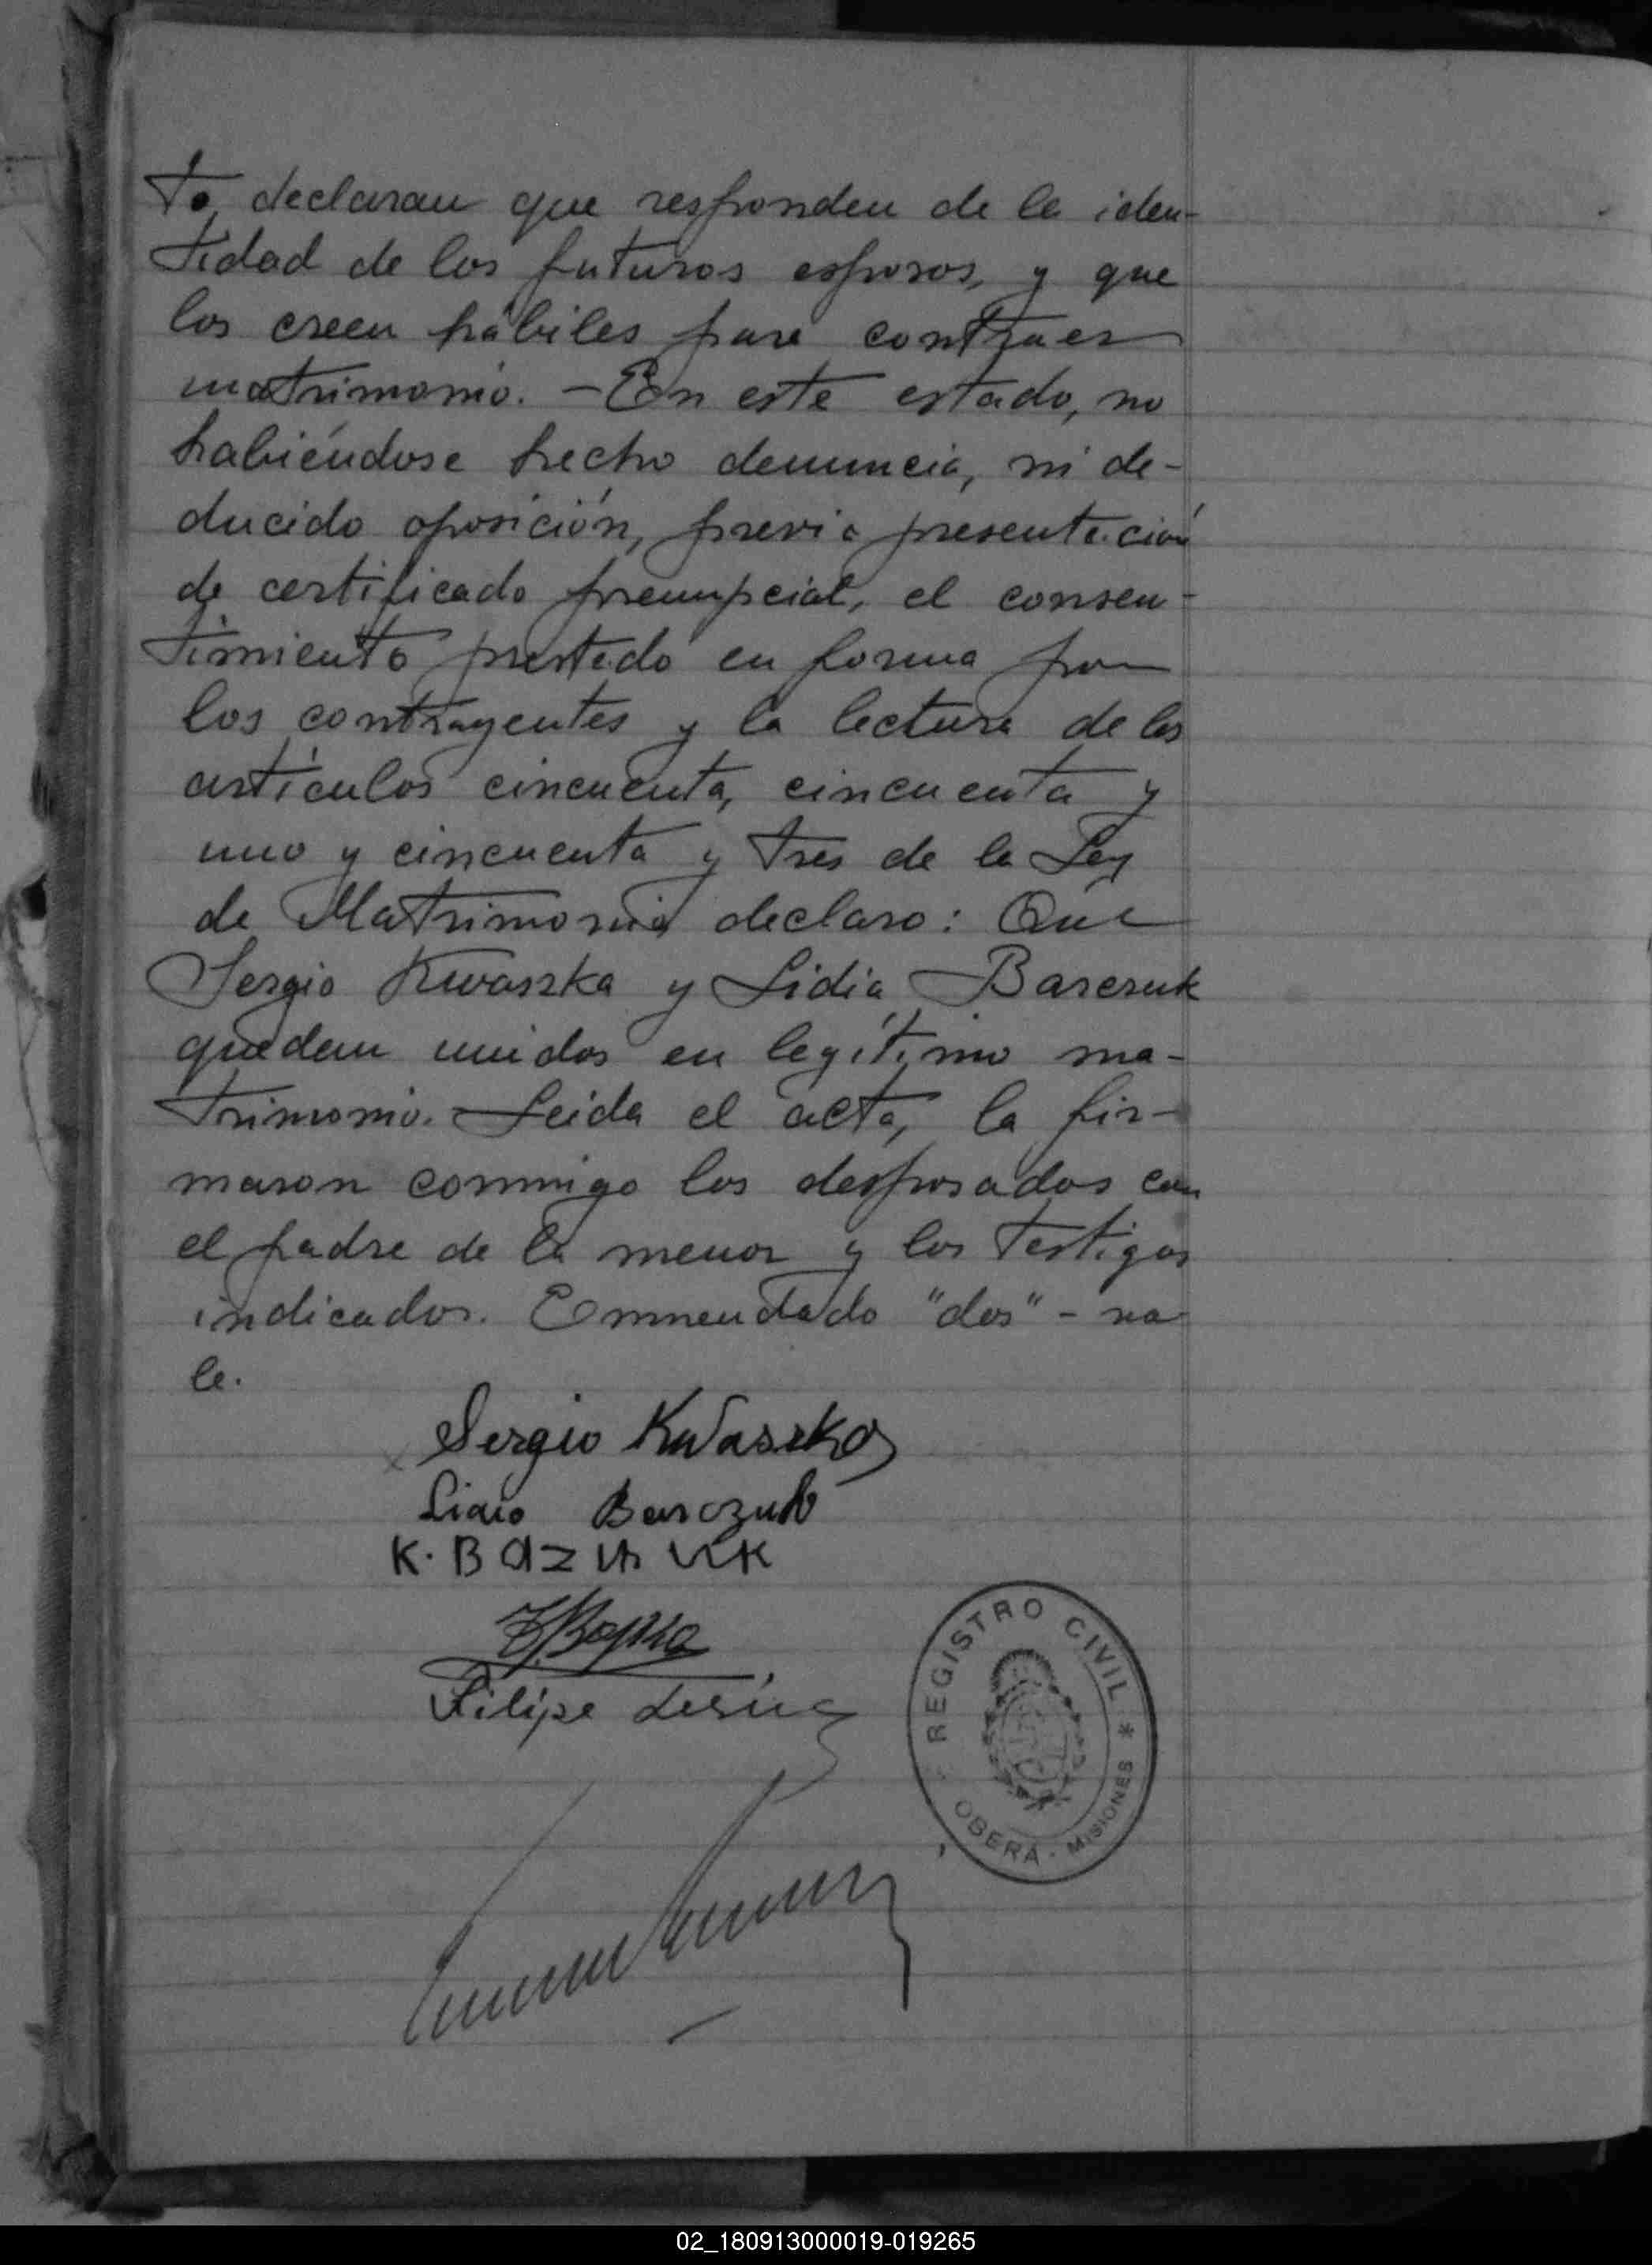 to, declaran que responden de la iden-
tidad de los futuros esposos, y que
los creen hábiles para contraer
matrimonio. - En este estado, no
habiéndose hecho denuncia, ni de-
ducido oposición, previa presentación
de certificado prenupcial, el consen-
timiento prestado en forma por
los contrayentes y la lectura de los
artículos cincuenta, cincuenta y
uno y cincuenta y tres de la Ley
de Matrimonio declaro: Que
Sergio Kwaszka y Lidia Barczuk
quedan unidos en legítimo ma-
trimonio. Leida el acta, la fir-
maron conmigo los desposados con
el padre de la menor y los testigos
indicados. Enmendado "dos" - va
le.
Sergio Kwaszka
Lidia Barczuk
K.
Filipe
REGISTRO CIVIL *
OBERÁ - MISIONES
02_180913000019-019265